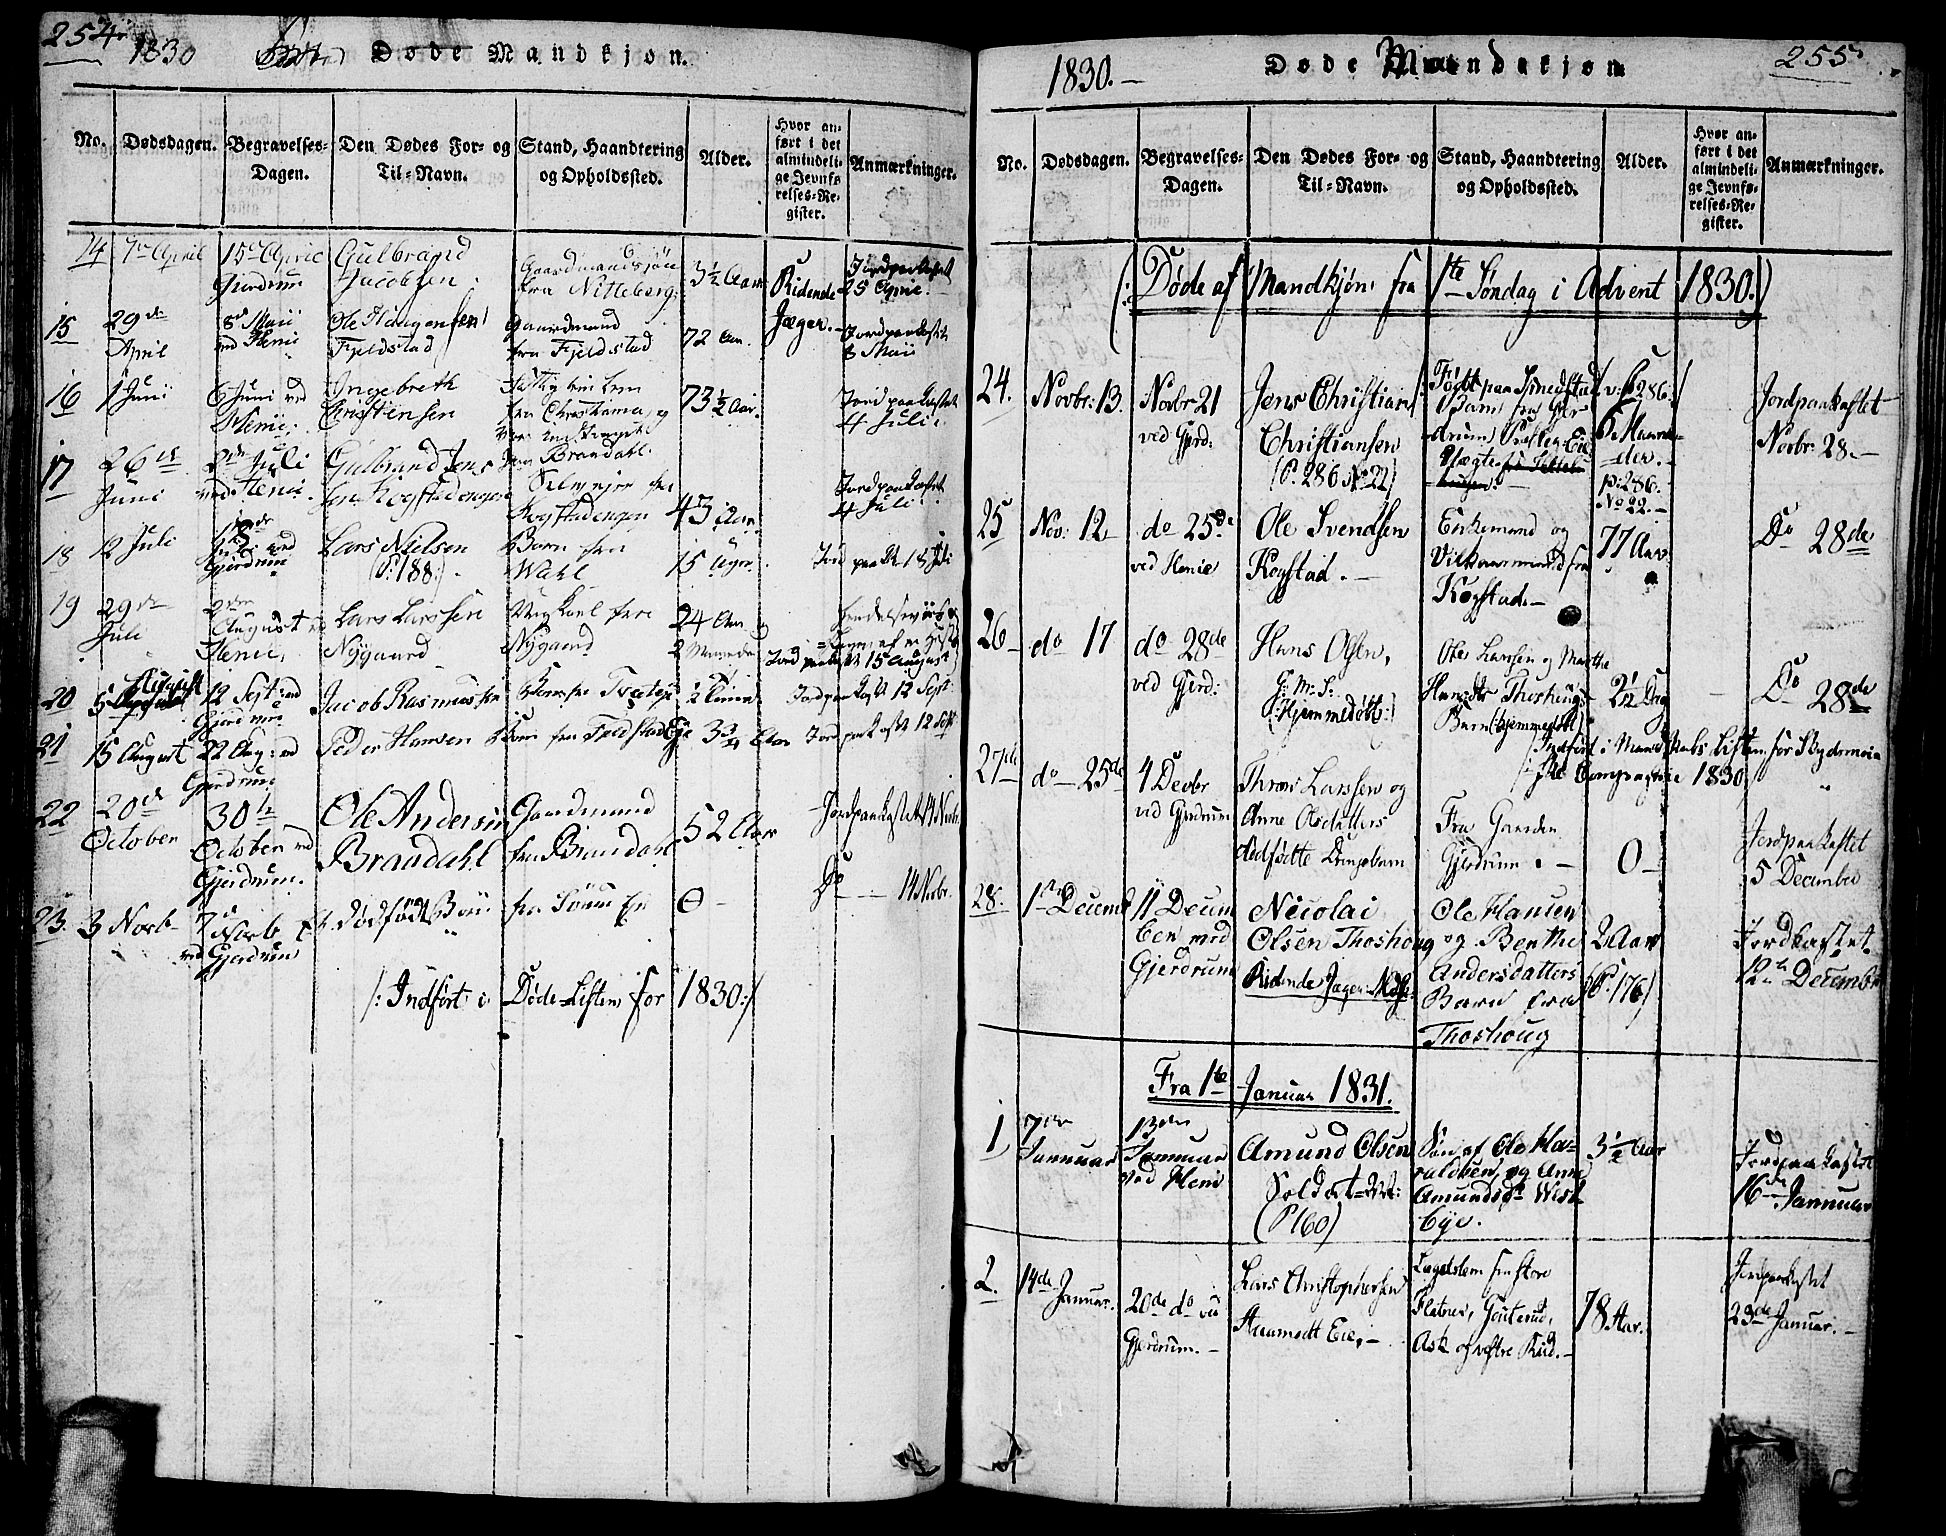 254.
1830
Døde Mandkjøn.
No.
Dødsdagen.
Begravelses-
Dagen.
Den Dødes For- og
Til-Navn.
Stand, Haandtering
og Opholdssted.
Alder.
Hvor an-
ført i det
almindeli-
ge Jevnfø
relses-Re-
gister.
Anmærkninger.
14
7de April
15de April
Gjerdrum
Gulbrand
Jacobsen
Gaardmandssøn
fra Nitteberg
3½ Aar
Ridende
Jæger.
Jordpaakastet
25 April.
15
29de
April
8de Maii
ved Henie
Ole Haagensen
Fjeldstad
Gaardmand
fra Fjeldstad
72 Aar.
Jordpaakastet
8 Maii
16
1 Juni
6 Juni ved
Henie.
Ingebreth
Christensen
fra Christiania og
Brandahl.
73½ Aar.
Jordpaakastet
4 Juli.
17
26de
Juni
2de Juli
ved Henie.
Gulbrand Jens
sen Kogstadengen
Selveyer fra
Kogstadengen
43 Aar
Jordpaakastet
4 Juli.
18
12 Juli
18de
Juli ved
Gjerdrum
Lars Nielsen
(P. 188.)
Barn fra
Wahl
15 Uger.
Jord paak. 18 Juli
19
29de
Juli
2den
August ved
Henie.
Lars Larssen
Nygaard
fra
Nygaard
24 Aar
2 Maaneder
Jord paakast 15 August
20
5 August
12 Sept: ved
Gjerdrum
Jacob Rasmussen
Barn fra
2 Timer
Jordpaakastet 12 Sept:
21
15 August
22 Aug: ved
Gjerdrum
Peder Hansen
Barn fra Fjeldstad Eje
3¾ Aar
Jord paakastet 12 Sept
22
20de
October
30te
October ved
Gjerdrum.
Ole Andersen
Brandahl
Gaardmand
fra Brandahl
52 Aar
Jordpaakastet 14 Novbr.
23.
3 Novb
7de
Novb
ved Gjerdrum
Et dødfødt Barn
fra Sørum Eje
0
Do 14 Novbr.
/: Indført i Døde-Listen for 1830 :/
1830.
Døde Mandskjøn
255
No.
Dødsdagen.
Begravelses-
Dagen.
Den Dødes For- og
Til-Navn.
Stand, Haandtering
og Opholdssted.
Alder.
Hvor an-
ført i det
almindeli-
ge Jevnfø-
relses-Re-
gister.
Anmærkninger.
(: Døde af Mandkjøn fra 1te Søndag i Advent 1830. :)
24.
Novbr: 13.
Novbr 21
ved Gjerd:
Jens Christian
Christiansen
(P. 286 No 22)
Født paa
Barn fra Gjer
drum
v: P 286.
Maane-
der.
p: 286.
No 22.
Jordpaakastet
Novbr: 28.
25
Nov: 12
do 25de
ved Henie
Ole Svendsen
Kogstad.
Enkemand og
Vilkaarmand fra
Kogstad.
77 Aar
Do 28de
26
do 17
do 28de
ved Gjerd:
Hans Olsen,
(: Hjemmedøbt :)
Ole Larssen og Marthe
Hansdtr Thoshougs
Barn (: hjemmedøbt)
2½ Dag
Do 28de
Indført i Mandskabs Listen for Skydsmoia
Compagnie 1830
27de
do 25de
4 Decbr
ved Gjerdrum
Thron Larssen og
Anne Olsdatters
dødfødte Drengebarn
Fra Gaarden
Gjerdrum.
0
Jordpaakastet
5 December
28.
1ste Decemb
11 Decem
ber ved
Gjerdrum
Nicolai
Olsen Thoshoug
Ridende Jæger
Ole Hansen
og Berthe
Andersdatters
Barn fra
Thoshoug
2 Aar
(P. 176)
Jordkastet
12te December
Fra 1te Januar 1831.
1
7de
Januar
13de
Januar
ved Henie
Amund Olsen
Soldat
(P 160)
Søn af Ole Ha-
raldsen og Anne
Amundsdtr
Eye.
3½ Aar
Jordpaakastet
16de Januar
2.
14de Januar.
20de do ved
Gjerdrum.
Lars Christophersen
Eie.
Lægdslem fra store
Ask og vestre Rud.
78 Aar.
Jordpaakastet
23de Januar.